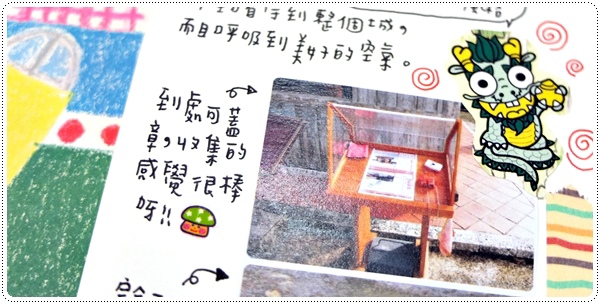 到整個城，
而且呼吸到美好的空氣。
到處可蓋
章，收集的
感覺很棒
呀!!